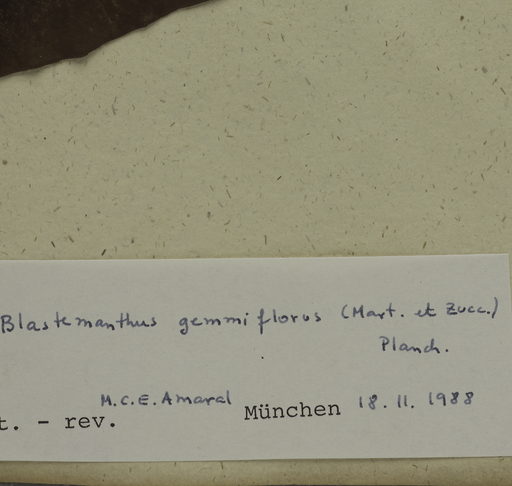 Blastemanthus gemmiflorus (Mart. et Zucc.)
Planch.
M.C.E. Amaral
t. - rev. München 18.11.1988